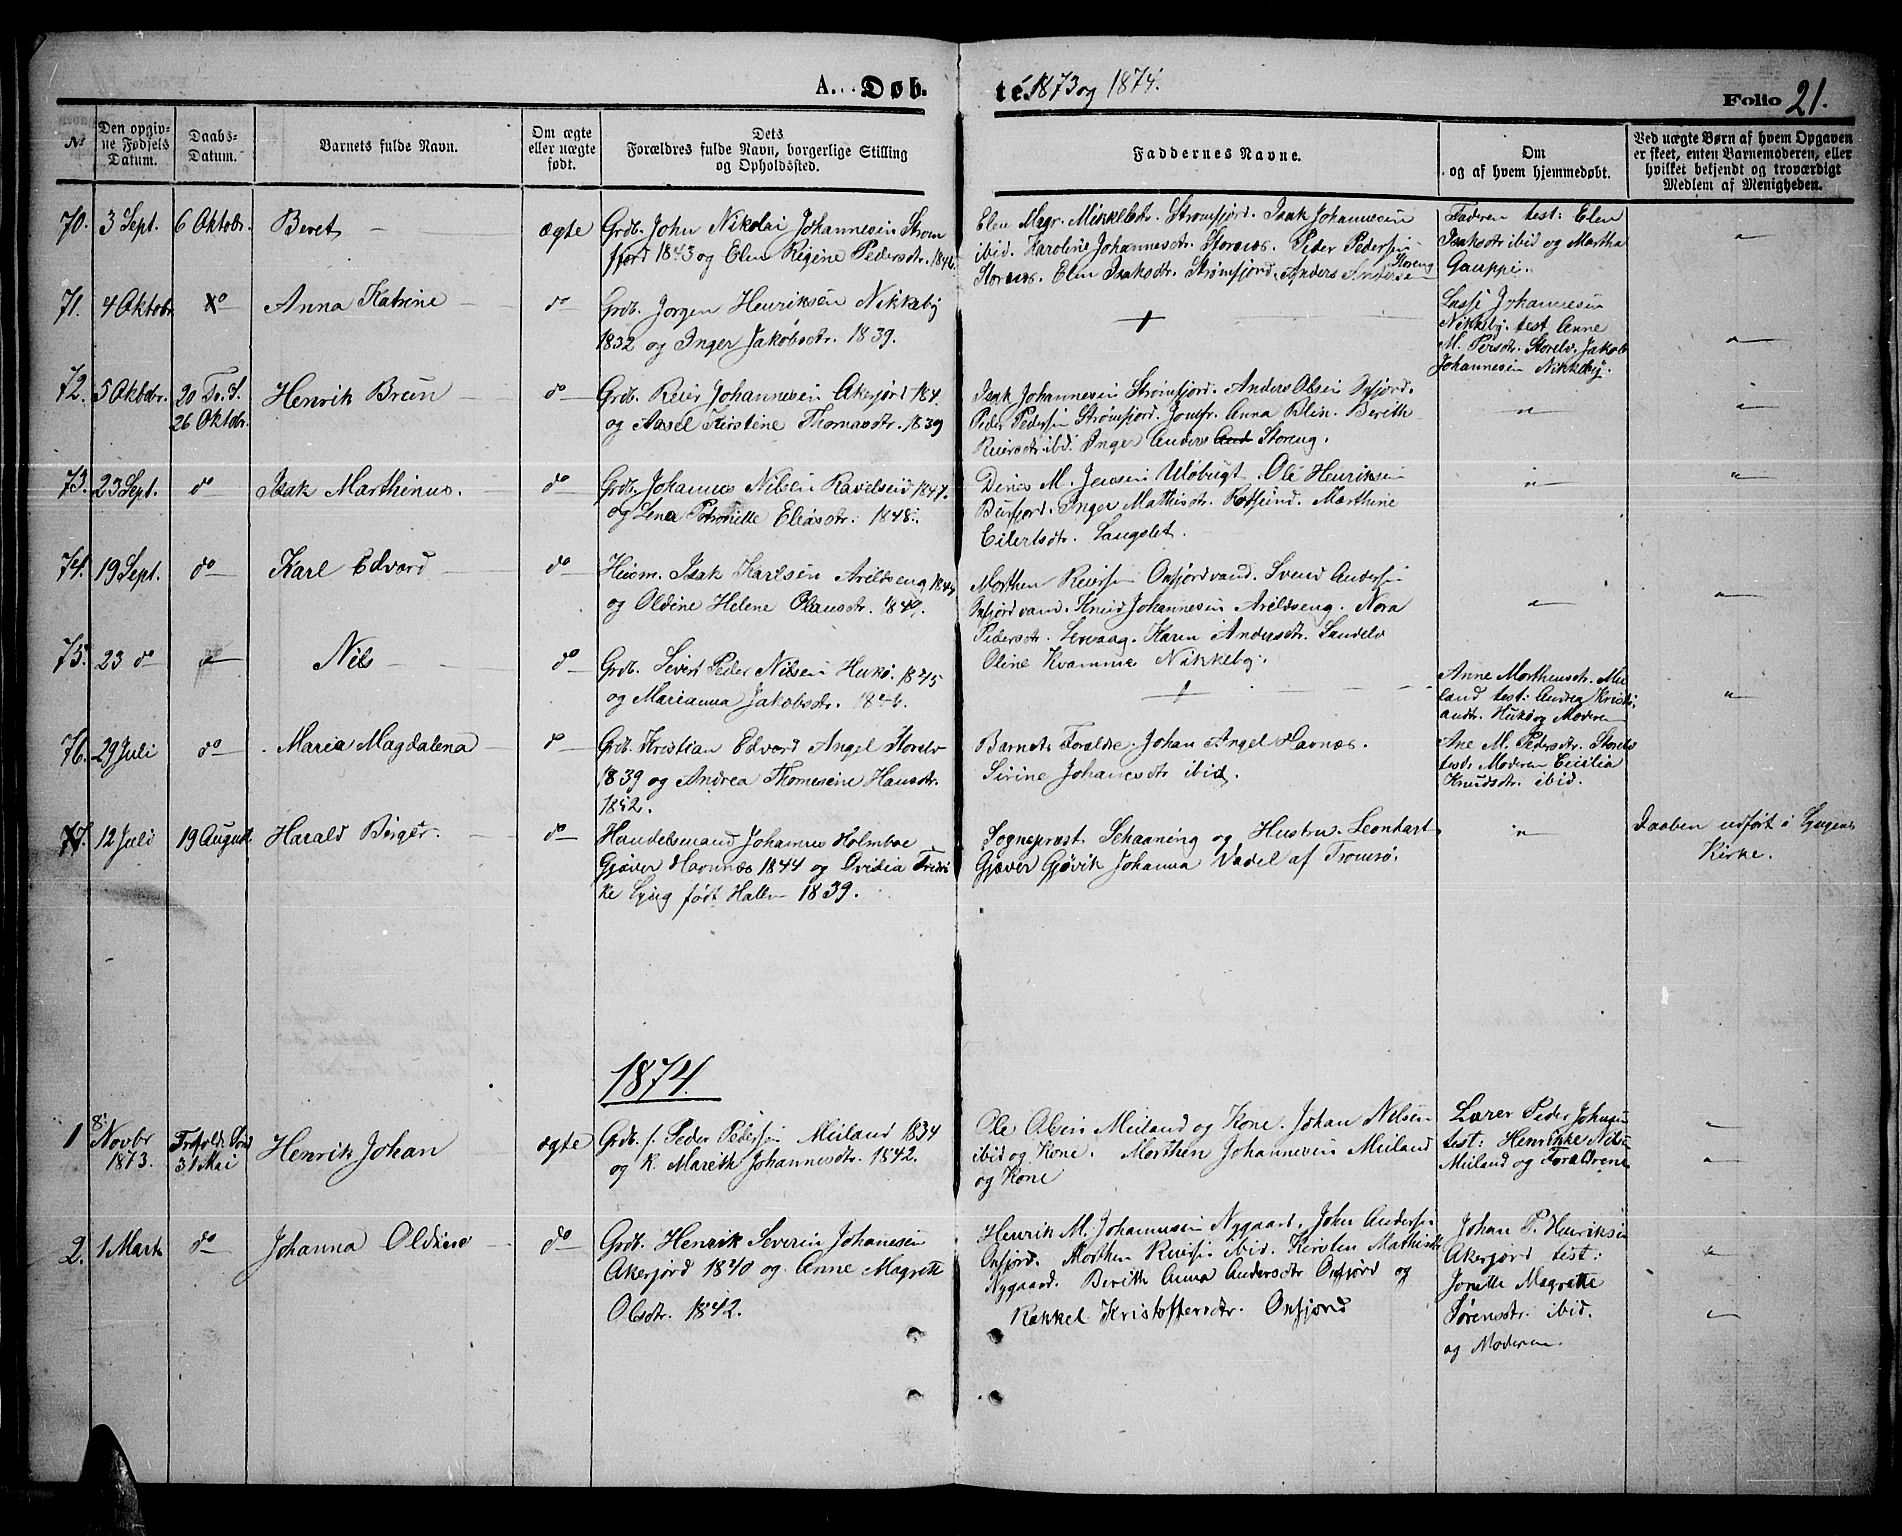 A. Døb
te. 1873 og 1874.
Folio 21.
№
Den opgiv-
ne Fødsels
Datum.
Daabs-
Datum.
Barnets fulde Navn.
Om ægte
eller uægte
født.
Dets
Forældres fulde Navn, borgerlige Stilling
og Opholdssted.
Faddernes Navne.
Om
og af hvem hjemmedøbt.
Ved uægte Børn af hvem Opgaven
er skeet, enten Barnemoderen, eller
hvilket bekjendt og troværdigt
Medlem af Menigheden.
70. 3 Sept. 6 Oktobr. Beret ægte
Grdb. John Nikolai Johannesen Strøm
fjord 1843 og Elen Regine Pedersdtr.
Elen Magr. Mikkelsdtr. Strømfjord. Isak Johannesen
ibid. Karoline Johannesdtr. Stornæs. Peder Pedersen
Storeng
Stornæs. Elen Isaksdtr. Strømfjord. Anders Andersen
Faderen test: Elen
Isaksdtr ibid og Martha
Gauppi.
71. 4 Oktobr. do Anna Katrine do
Grdb. Jørgen Henriksen Nikkeby
1832 og Inger Jakobsdtr. 1839.
+
Lasse Johannesen
Nikkeby. test Anne
M. Persdtr. Storelv. Jakob
Johannesen Nikkeby.
72. 5 Oktbr. 20 Tr. S.
26 Oktobr. Henrik Breun do
Grdb. Reier Johannesen Akerfjord 184
og Axsel Kirstine Thomasdtr. 1839
Isak Johannesen Strømfjord. Anders Olsen Oxfjord.
Peder Pedersen Strømfjord. Jomfr. Anna Blix. Berith
Reiersdtr ibid. Inger Anders Storeng.
73. 23 Sept. do Isak Marthinus. do
Grdb. Johannes Nilsen Ravelseid 1847.
og Lena Petronille Eliasdtr. 1848.
Dines M. Jensen Uløbugt. Ole Henriksen
Burfjord. Inger Mathisdtr. Rotsund. Marthine
Eilertsdtr. Langslet.
74. 19 Sept. do Karl Edvard do
Huusm. Isak Karlsen Arildseng
og Oldine Helene Olausdtr. 1849.
Morthen Reiersen Oxfjordvand. Svend Andersen
Oxfjordvand. Knud Johannesen Arildseng. Nora
Pedersdtr. Lervaag. Karen Andersdtr. Sandelv
Oline Kvamme Nikkeby.
75. 23 do Nils do
Grdb. Sivert Peder Nilsen Hukø. 1845
og Marianna Jakobsdtr.
+
Anne Morthensdtr. Mei
land test: Andrea Kristi
andtr. Hukø og Moderen
76. 29 Juli do Maria Magdalena do
Grdb. Kristian Edvard Angel Storelv
1839 og Andrea Thomesine Hansdtr.
1842.
Barnets Forældre. Johan Angel Havnæs.
Sirine Johanesdtr ibid.
Ane M. Pedersdtr. Storelv
test. Moderen Cecilia
Knudsdtr. ibid.
77. 12 Juli 19 August Harald Birger. do
Handelsmand Johannes Holmboe
Gjæver Havnnæs 1844 og Ovidia Fredri
ke Lyng født Halle 1839.
Sogneprest Schaaning og Hustru. Leonhart
Gjæver Gjøvik Johanna Vadel af Tromsø.
Daaben udført i Lyngens
Kirke.
1874.
1 8.
Novbr
1873.
Trefold. Sønd
31 Mai
Henrik Johan ægte
Grdb. f. Peder Pedersen Meiland 1834
og K. Mareth Johannesdtr. 1842.
Ole Olsen Meiland og Kone. Johan Nilsen
ibid og Kone. Morthen Johannesen Meiland
og Kone
Lærer Peder Johnsen
test: Henrikke Nils
Meiland og Forældrene
2. 1 Mart do Johanna Oldine do
Grdb. Henrik Severin Johanesen
Akerfjord 1840 og Anne Magrete
Olsdtr. 1842.
Henrik M. Johannesen Nygaard. John Andersen
Oxfjord. Morthen Reiersen ibid. Kirsten Mathisdtr
Nygaard. Berith Anna Andersdtr Oxfjord og
Rakkel Kristoffersdtr. Oxfjord
Johan P. Henriksen
Akerfjord test:
Jonette Magrette
Sørensdtr. ibid.
og Moderen.